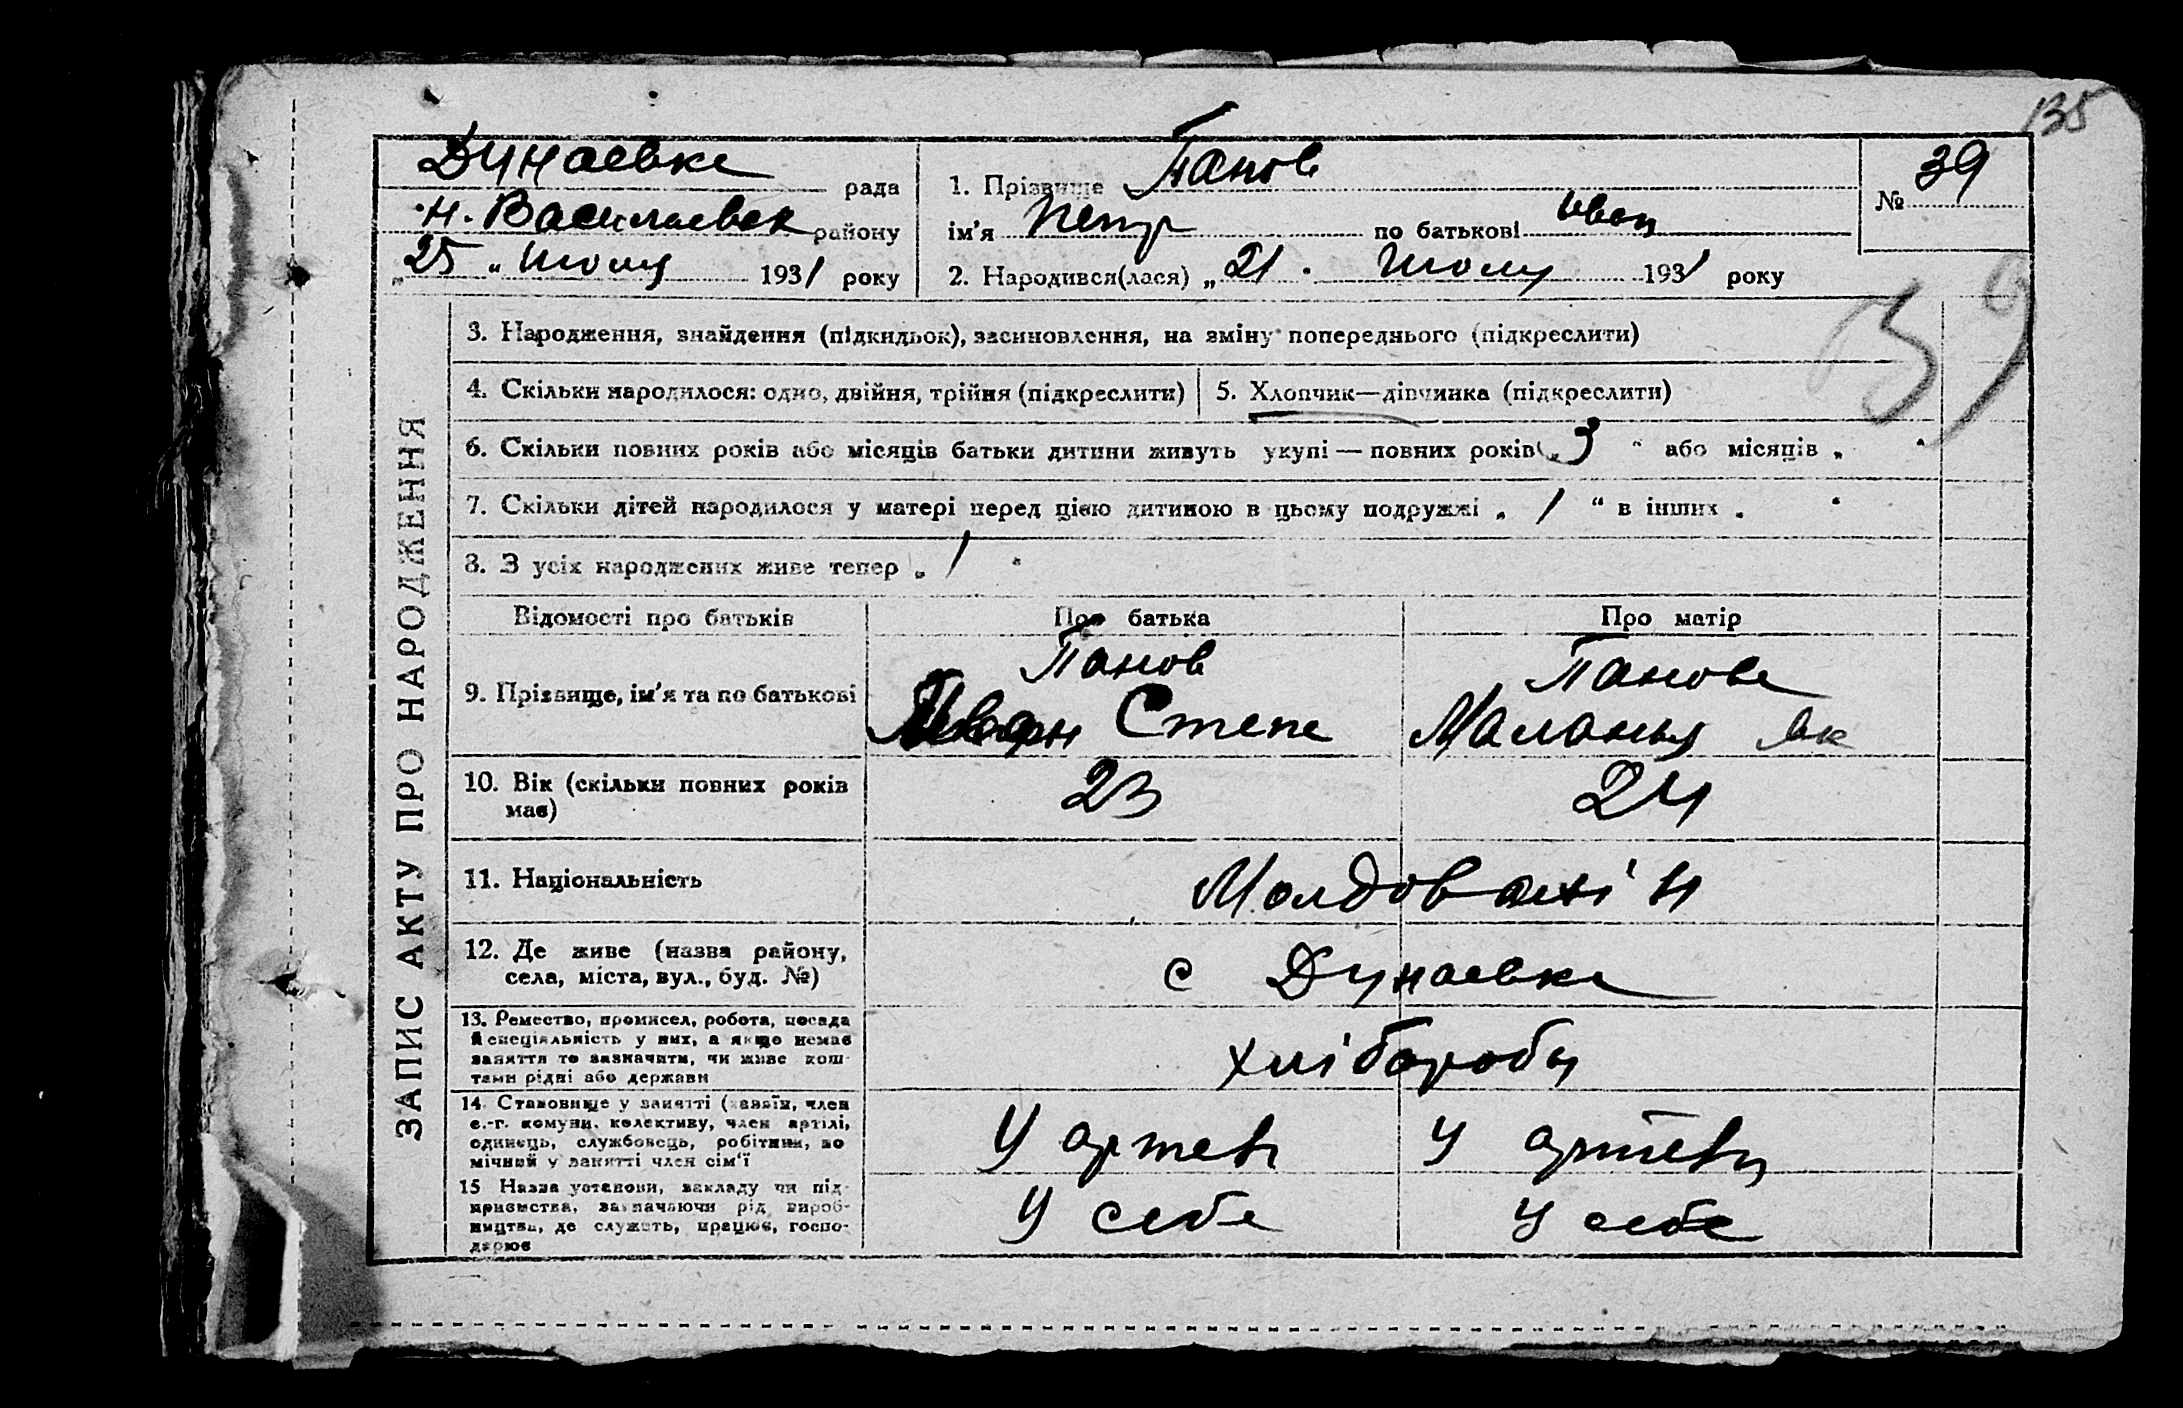 135
Дунаевке рада
Н. Василиевск району
„25“ июлу 1931 року
1. Прізвище Панов
ім'я Петр по батькові Иван
2. Народився(лася) „21. июлу 1931 року
№ 39
39
ЗАПИС АКТУ ПРО НАРОДЖЕННЯ
3. Народження, знайдення (підкидьок), засиновлення, на зміну попереднього (підкреслити)
4. Скільки народилося: одно, двійня, трійня (підкреслити)
5. Хлопчик—дівчинка (підкреслити)
6. Скільки повних років або місяців батьки дитини живуть укупі — повних років „3“ або місяців „ “
7. Скільки дітей народилося у матері перед цією дитиною в цьому подружжі „1“ в інших „ “
8. З усіх народжених живе тепер „1“
Відомості про батьків
Про батька
Про матір
9. Прізвище, ім'я та по батькові
Панов
Иван Степе
Панове
Маланья Як
10. Вік (скільки повних років
має)
23
24
11. Національність
Молдовані н
12. Де живе (назва району,
села, міста, вул., буд. №)
с Дунаевке
13. Ремество, промисел, робота, посада
й спеціяльність у них, а якщо немає
заняття то зазначити, чи живе кош-
тами рідні або держави
хлібороби
14. Становище у занятті (хазяїн, член
с.-г. комуни, колективу, член артілі,
одинець, службовець, робітник, по
мічний у занятті член сім'ї
У артели
У артели
15 Назва установи, закладу чи під-
приємства, зазначаючи рід вироб-
ництва, де служить, працює, госпо-
дарює
У себе
У себе